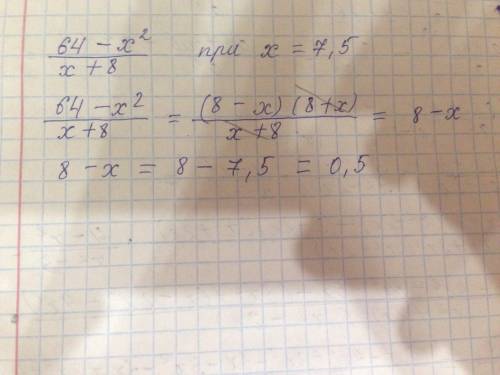 (64 - x²)/(x + 8) при x = 7,5
(64 - x²)/(x + 8) = ((8 - x)(8 + x))/(x + 8) = 8 - x
8 - x = 8 - 7,5 = 0,5